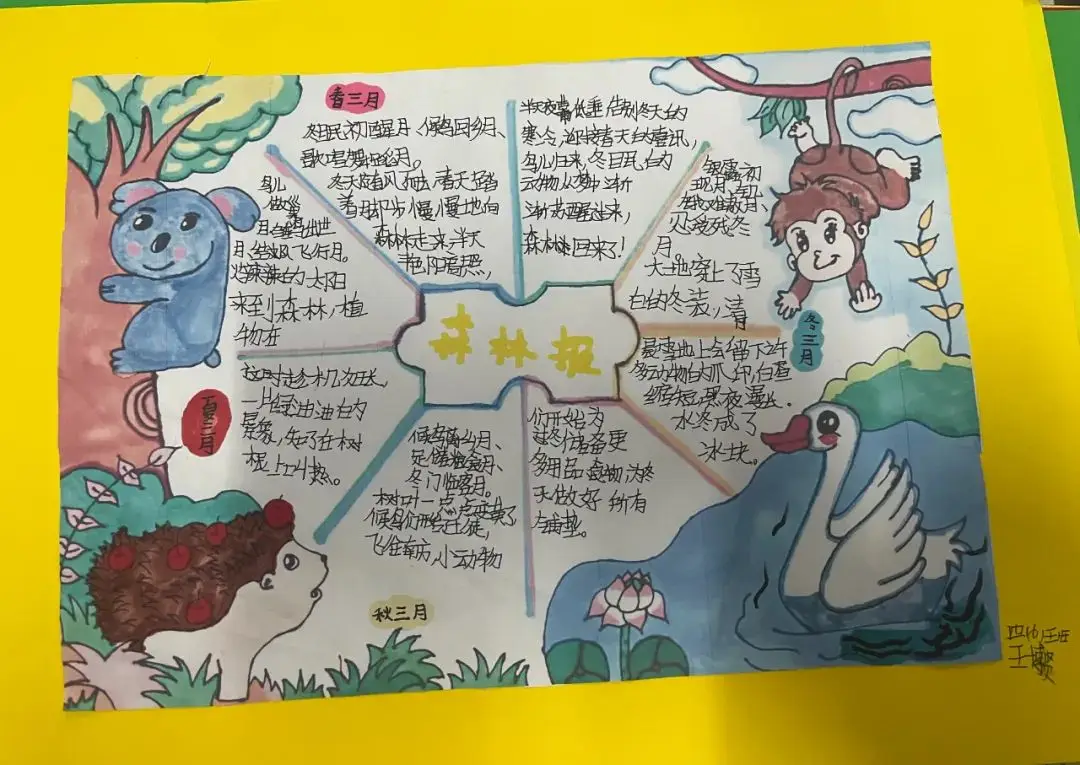 森林报
春三月
冬眠初醒月、候鸟回乡月、
歌唱舞蹈月。
冬天随着风而去,春天踏
着
却步慢慢地向
森林走来,半天
艳阳高照,
半夜
低垂,告别冬天的
寒冷,迎接春天的喜讯,
鸟儿归来,冬日眠的
动物从梦中渐
渐苏醒过来,
森林
回来了!
夏三月
鸟儿
做巢
月、
出世
月、
飞行月。
火辣辣的太阳
来到森林,植
物在
这时趁机汲长,
一片绿油油的
景象,知了在树
根上叫热。
秋三月
候鸟离乡月、
足储粮食月、
冬门临客月。
树叶一点点变黄了
候鸟们形告迁徒,
飞往南方,小动物
们开始为
过冬储备更
多用品、食物,为冬
天做好所有
铺垫。
冬三月
银露初
现月、
难敲月、
忍受残冬
月。
大地穿上了雪
白的冬装,清
晨雪地上会留下许
多动物的爪印,白昼
缩短,黑夜漫长.
水冬成了
冰块。
四(6)班
王